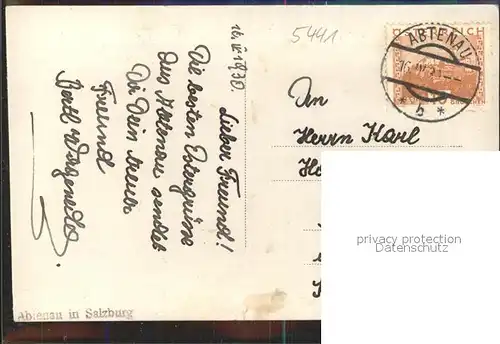 5441
16. IV 1930.
Lieber Freund!
Die besten Ostergrüsse
aus Abtenau sendet
Dir Dein treuer
Freund
Bertl
An
Herrn Karl
ABTENAU
* b *
privacy protection
Datenschutz
Abtenau in Salzburg